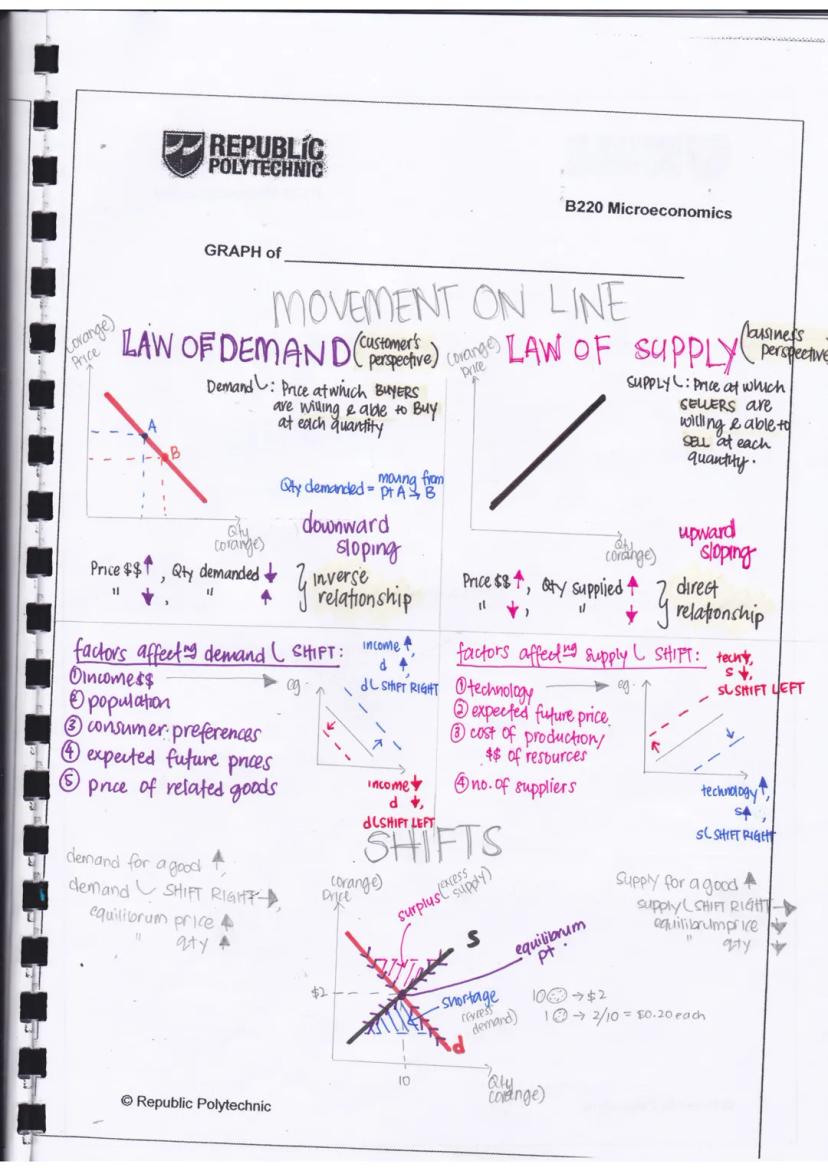 REPUBLIC
POLYTECHNIC
B220 Microeconomics
GRAPH of
MOVEMENT ON LINE
LAW OF DEMAND (customer's perspective)
(orange) Price
Demand : Price at which BUYERS
are willing & able to BUY
at each quantity
A
B
Qty demanded = moving from
pt A → B
Qty
(orange)
downward
sloping
Price $$ ↑, Qty demanded ↓
" ↓, " ↑
} inverse
relationship
LAW OF SUPPLY (business perspective)
(orange)
Price
SUPPLY : Price at which
SELLERS are
willing & able to
SELL at each
quantity.
Qty
(orange)
upward
sloping
Price $$ ↑, Qty supplied ↑
" ↓, " ↓
} direct
relationship
factors affectng demand SHIFT:
① income $$ → eg.
② population
③ consumer preferences
④ expected future prices
⑤ price of related goods
income ↑,
d ↑,
d SHIFT RIGHT
income ↓
d ↓,
d SHIFT LEFT
factors affectng supply SHIFT:
① technology → eg.
② expected future price
③ cost of production/
$$ of resources
④ no. of suppliers
tech ↓,
s ↓,
s SHIFT LEFT
technology ↑,
s ↑,
s SHIFT RIGHT
SHIFTS
demand for a good ↑,
demand SHIFT RIGHT →,
equilibrum price ↑
" qty ↑
(orange)
Price
surplus (excess supply)
S
equilibrum
pt.
$2
shortage
(excess
demand)
d
10
Qty
(orange)
10 → $2
1 → 2/10 = $0.20 each
Supply for a good ↑
supply SHIFT RIGHT →
equilibrum price ↓
" qty ↓
© Republic Polytechnic